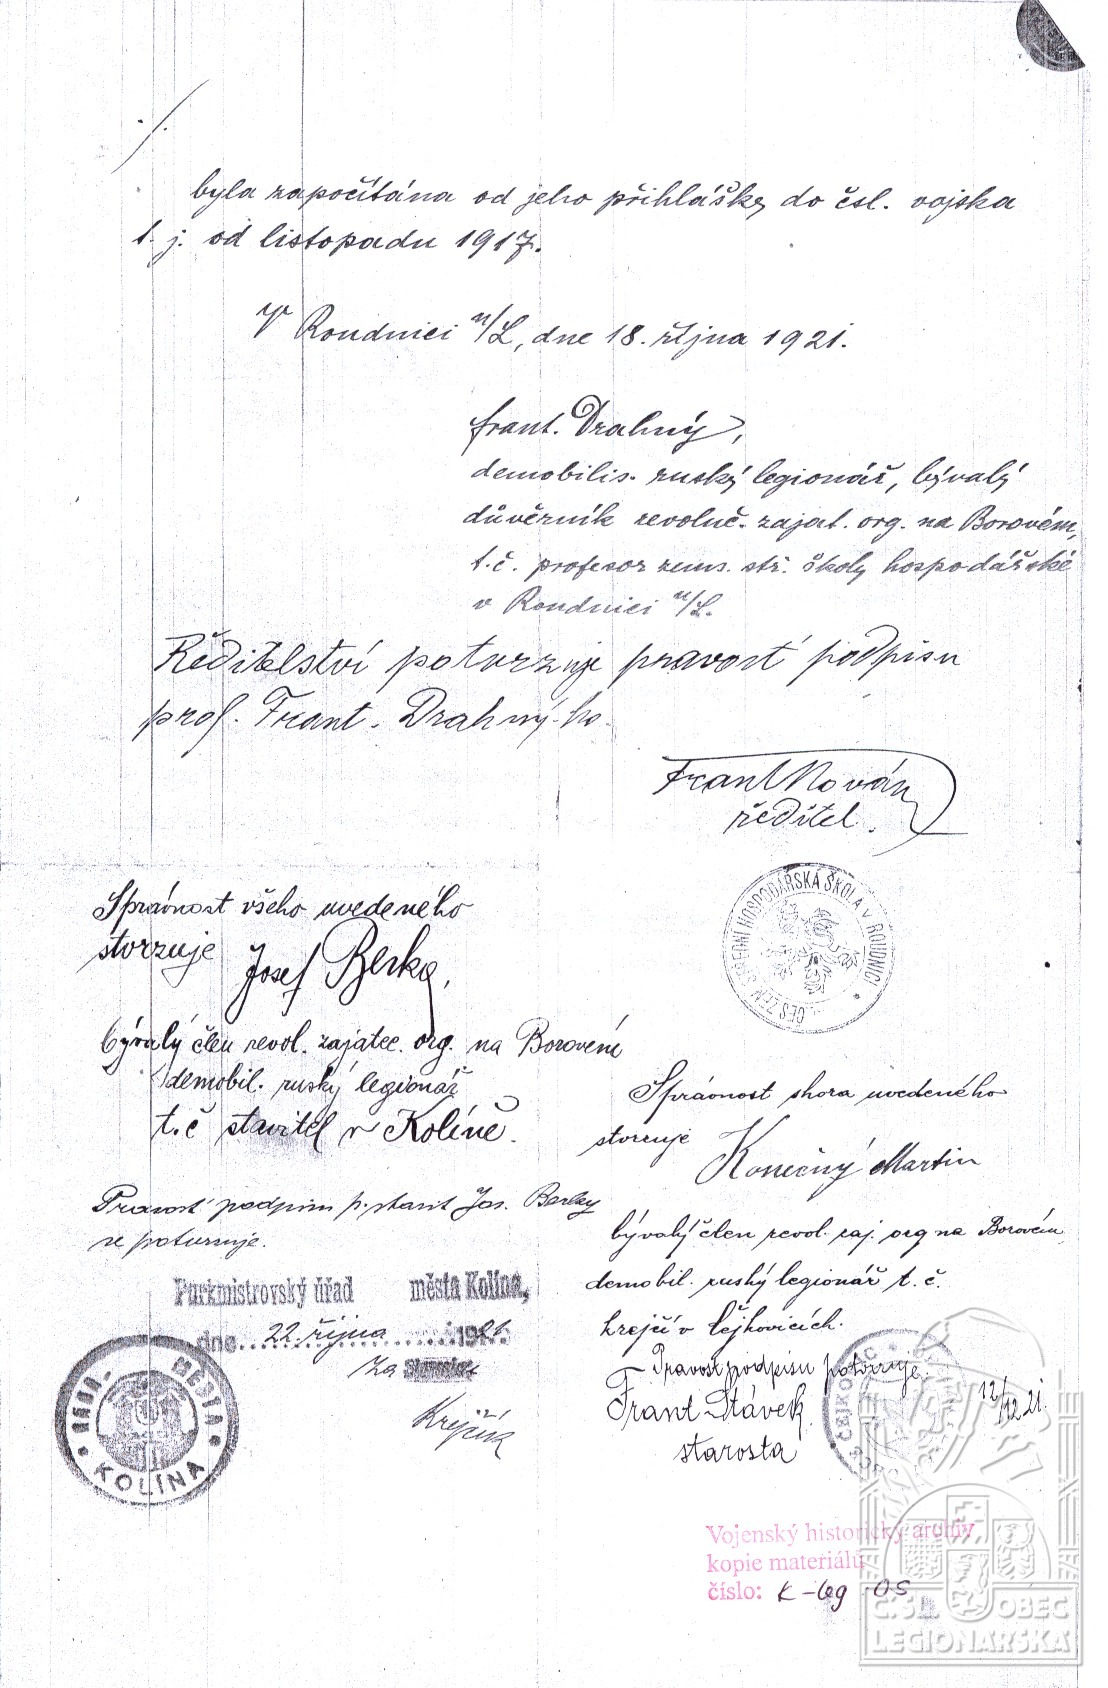 byla započítána od jeho přihlášky do čsl. vojska
t. j. od listopadu 1917.
V Roudnici n/L, dne 18. října 1921.
Frant. Drahný,
demobilis. ruský legionář, bývalý
důvěrník revoluč. zajat. org. na Borovém,
t.č. profesor zems. stř. školy hospodářské
v Roudnici n/L.
Ředitelství potvrzuje pravost podpisu
prof. Frant. Drahný-ho.
Frant Nován
ředitel.
STŘEDNÍ HOSPODÁŘSKÁ ŠKOLA V ROUDNICI
Správnost všeho uvedeného
stvrzuje
Josef Berka,
bývalý člen revol. zajatec. org. na Borovém
demobil. ruský legionář
t.č stavitel v Kolíně.
Pravost podpisu p. stavit Jos. Berky
se potvrzuje.
Purkmistrovský úřad města Kolína,
dne 22. října 1921
Za
Krejčík
RADA MĚSTA
KOLÍNA
Správnost shora uvedeného
stvrzuje
Konečný Martin
bývalý člen revol. zaj. org na Borovém
demobil. ruský legionář t. č.
krejčí v Čejkovicích.
Pravost podpisu potvrzuje.
Frant Stávek
starosta
12/12 21.
Vojenský historický archiv
kopie materiálu
číslo: K-leg OS
Č.S. OBEC
LEGIONÁŘSKÁ